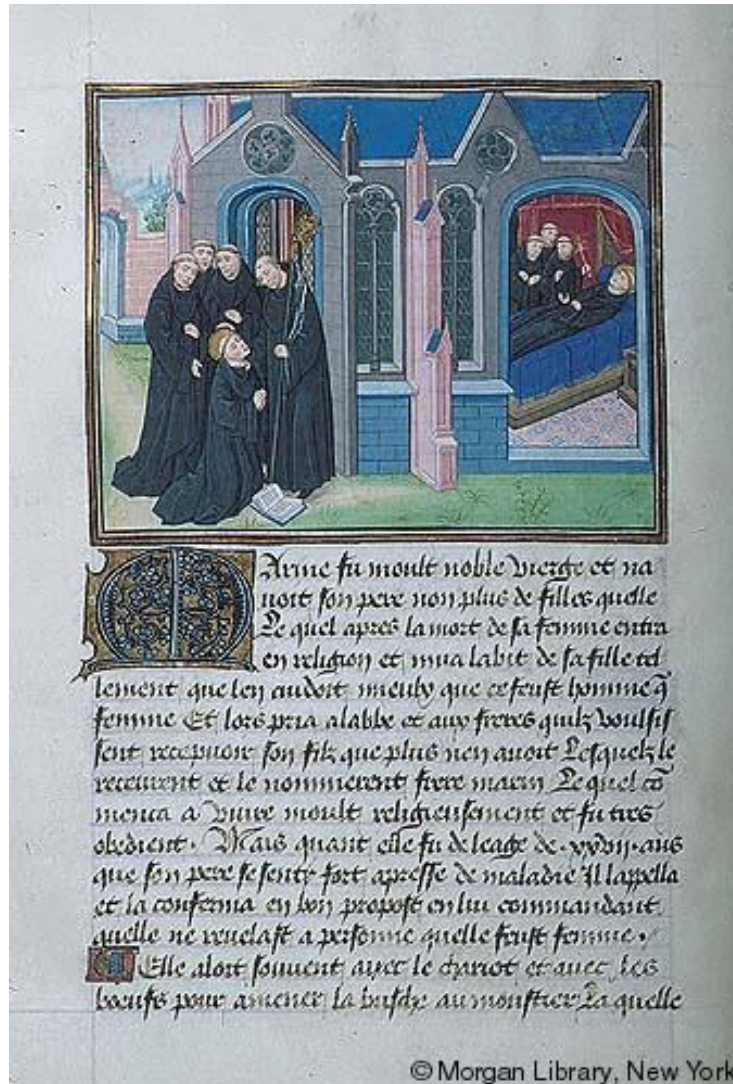 Marine fu moult noble vierge et na
uoit son pere non plus de filles quelle
Le quel apres la mort de sa femme entra
en religion et mua labit de sa fille tel
lement que len cuidoit mieulx que ce feust homme q̄
femme Et lors pria alabbe et aux freres quilz voulsis
sent recepuoir son filz que plus nen auoit Lesquelz le
receurent et le nommerent frere marin Le quel cō
menca a viure moult religieusement et fu tres
obedient. Mais quant elle fu de leage de .xxvii. ans
que son pere se senty fort apresse de maladie Il lappella
et la conferma en bon propost en lui commandant
quelle ne reuelast a personne quelle feust femme.
Elle aloit souuent auec le chariot et auec les
boeufs pour amener la busche au moustier La quelle
© Morgan Library, New York